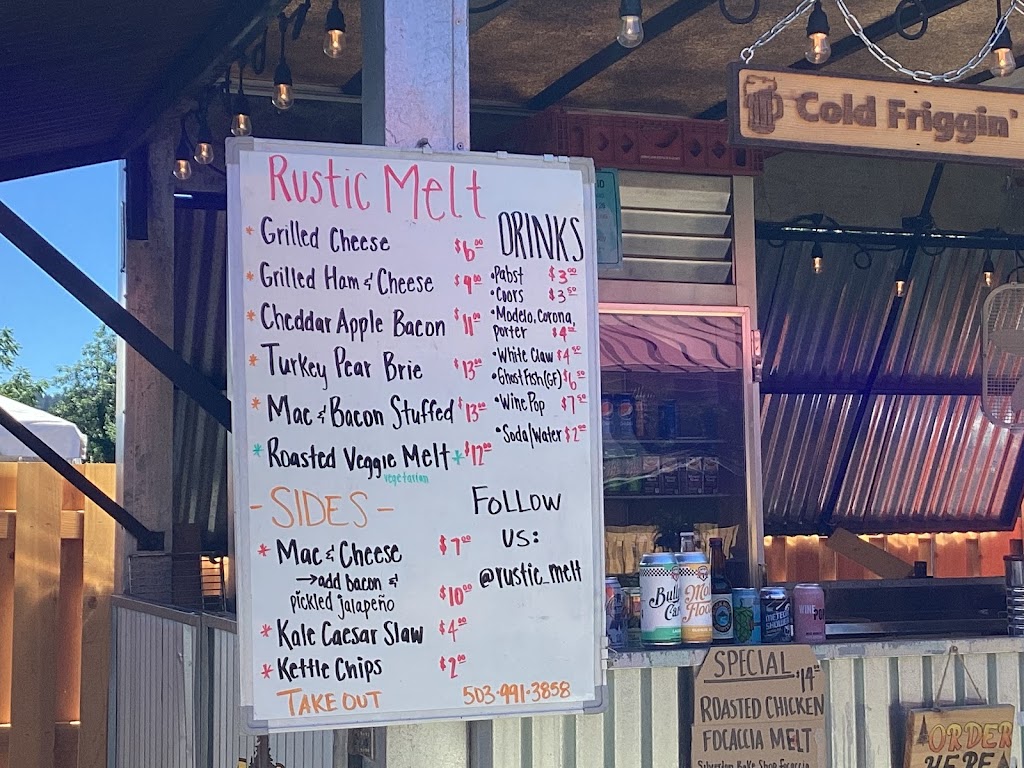 Rustic Melt
* Grilled Cheese $6.00
* Grilled Ham & Cheese $9.00
* Cheddar Apple Bacon $11.00
* Turkey Pear Brie $13.00
* Mac & Bacon Stuffed $13.00
* Roasted Veggie Melt * $12.00
vegetarian
- SIDES -
* Mac & Cheese $7.00
→ add bacon &
pickled jalapeño $10.00
* Kale Caesar Slaw $4.00
* Kettle Chips $2.00
TAKE OUT 503-991-3858
DRINKS
• Pabst $3.00
• Coors $3.50
• Modelo, Corona,
porter
• White Claw $4.50
• Ghost Fish (GF) $6.50
• Wine Pop $7.50
• Soda/Water $2.00
FOLLOW
US:
@rustic_melt
Cold Friggin'
SPECIAL $14.00
ROASTED CHICKEN
FOCACCIA MELT
Silverton Bake Shop focaccia
ORDER
HERE
METEOR
SHOWER
WINE